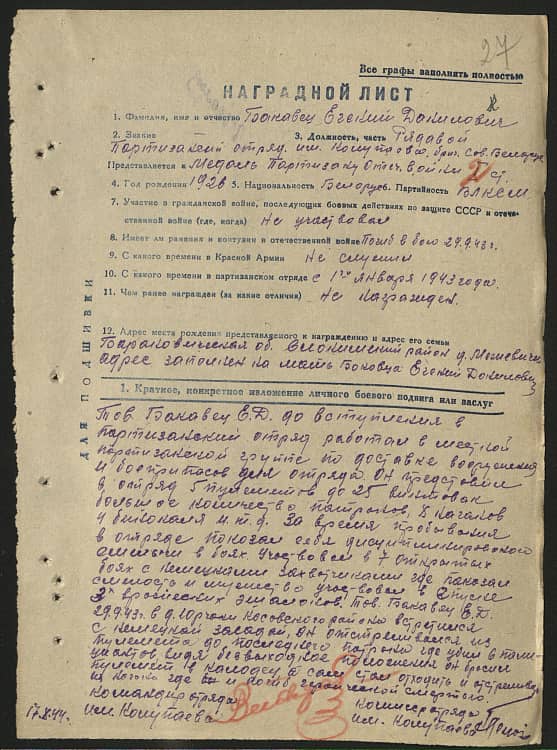 27
Все графы заполнить полностью
НАГРАДНОЙ ЛИСТ
1. Фамилия, имя и отчество Бакавец Евгений Данилович
2. Звание 3. Должность, часть Рядовой
Партизанский отряд им. Комутаева, бриг. Сов. Беларусь
Представляется к Медаль Партизану Отеч. войны ст.
4. Год рождения 1926 5. Национальность Белорус 6. Партийность ВЛКСМ
7. Участие в гражданской войне, последующих боевых действиях по защите СССР и отече-
ственной войне (где, когда) не участвовал
8. Имеет ли ранения и контузии в отечественной войне Погиб в бою 29.9.43г.
9. С какого времени в Красной Армии не служил
10. С какого времени в партизанском отряде с 1го января 1943 года.
11. Чем ранее награжден (за какие отличия) Не награжден.
12. Адрес места рождения представляемого к награждению и адрес его семьи
Барановичская об. Слонимский район д.
адрес заполнен на мать Бакавец Евгений Данилович
ДЛЯ ПОДШИВКИ
1. Краткое, конкретное изложение личного боевого подвига или заслуг
Тов. Бакавец Е.Д. до вступления в
партизанский отряд работал в местной
партизанской группе по доставке вооружения
и боеприпасов для отряда. Он предоставил
в отряд 5 пулеметов до 25 винтовок
большое количество патронов, 8
и т.д. За время пребывания
в отряде показал себя дисциплинированого
в боях. Участвовал в 7 открытых
боях с немецкими захватчиками где показал
смелость и мужество участвовал в спуске
3х вражеских эшалонов. Тов. Бакавец Е.Д.
29.9.43г. в д. Юрчаки Косовского района встретился
с немецкой засадой, он отстреливался из
пулемета до последнего патрона где убил
видя безвыходное положения он бросил
пулемет в колодец а сам стал отходить и
где и погиб героической смертью.
Командир отряда Комиссар отряда
им. Комутаева им. Комутаева
17.X.44г.